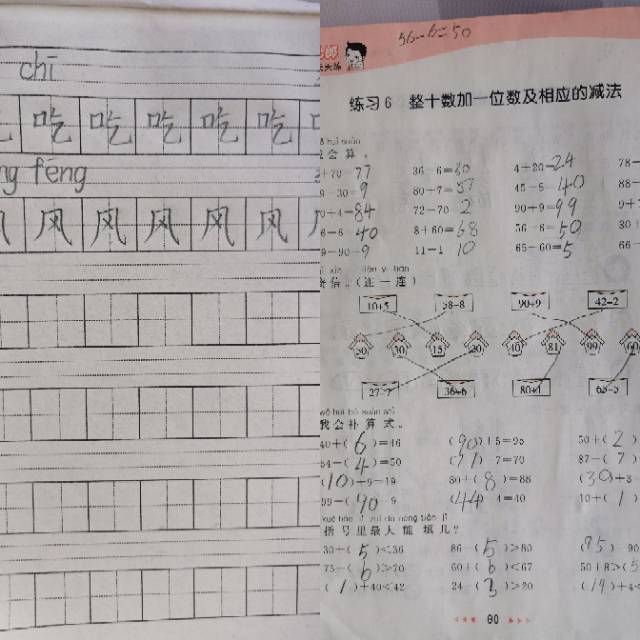 chī
吃 吃 吃 吃 吃
fēng
风 风 风 风 风
56-6=50
练习6 整十数加一位数及相应的减法
36-6=30 4+20=24 78-
80+7=87 45-5=40 88-
0+4=84 72-70 2 90+9=99
40 8+60=68 56-6=50
11-1 10 65-60=5 66-
(连一连)
10+5 58-8 90+9 42-2
50 30 15 20 40 81 99 60
27-7 36-6 80+1 65-5
我会补算式。
40+(6)=46 (90)+5=95 50+(2)
54-(4)=50 (71) 7=70 87-(7)
(10)+9=19 80+(8)=88 (30)+3
(44) 4=40 10+(1)
括号里最大能填几?
30+(5)<36 86-(5)>80
75-(6)>70 60+(6)<67
(1)+40<42 24-(3)>20
90